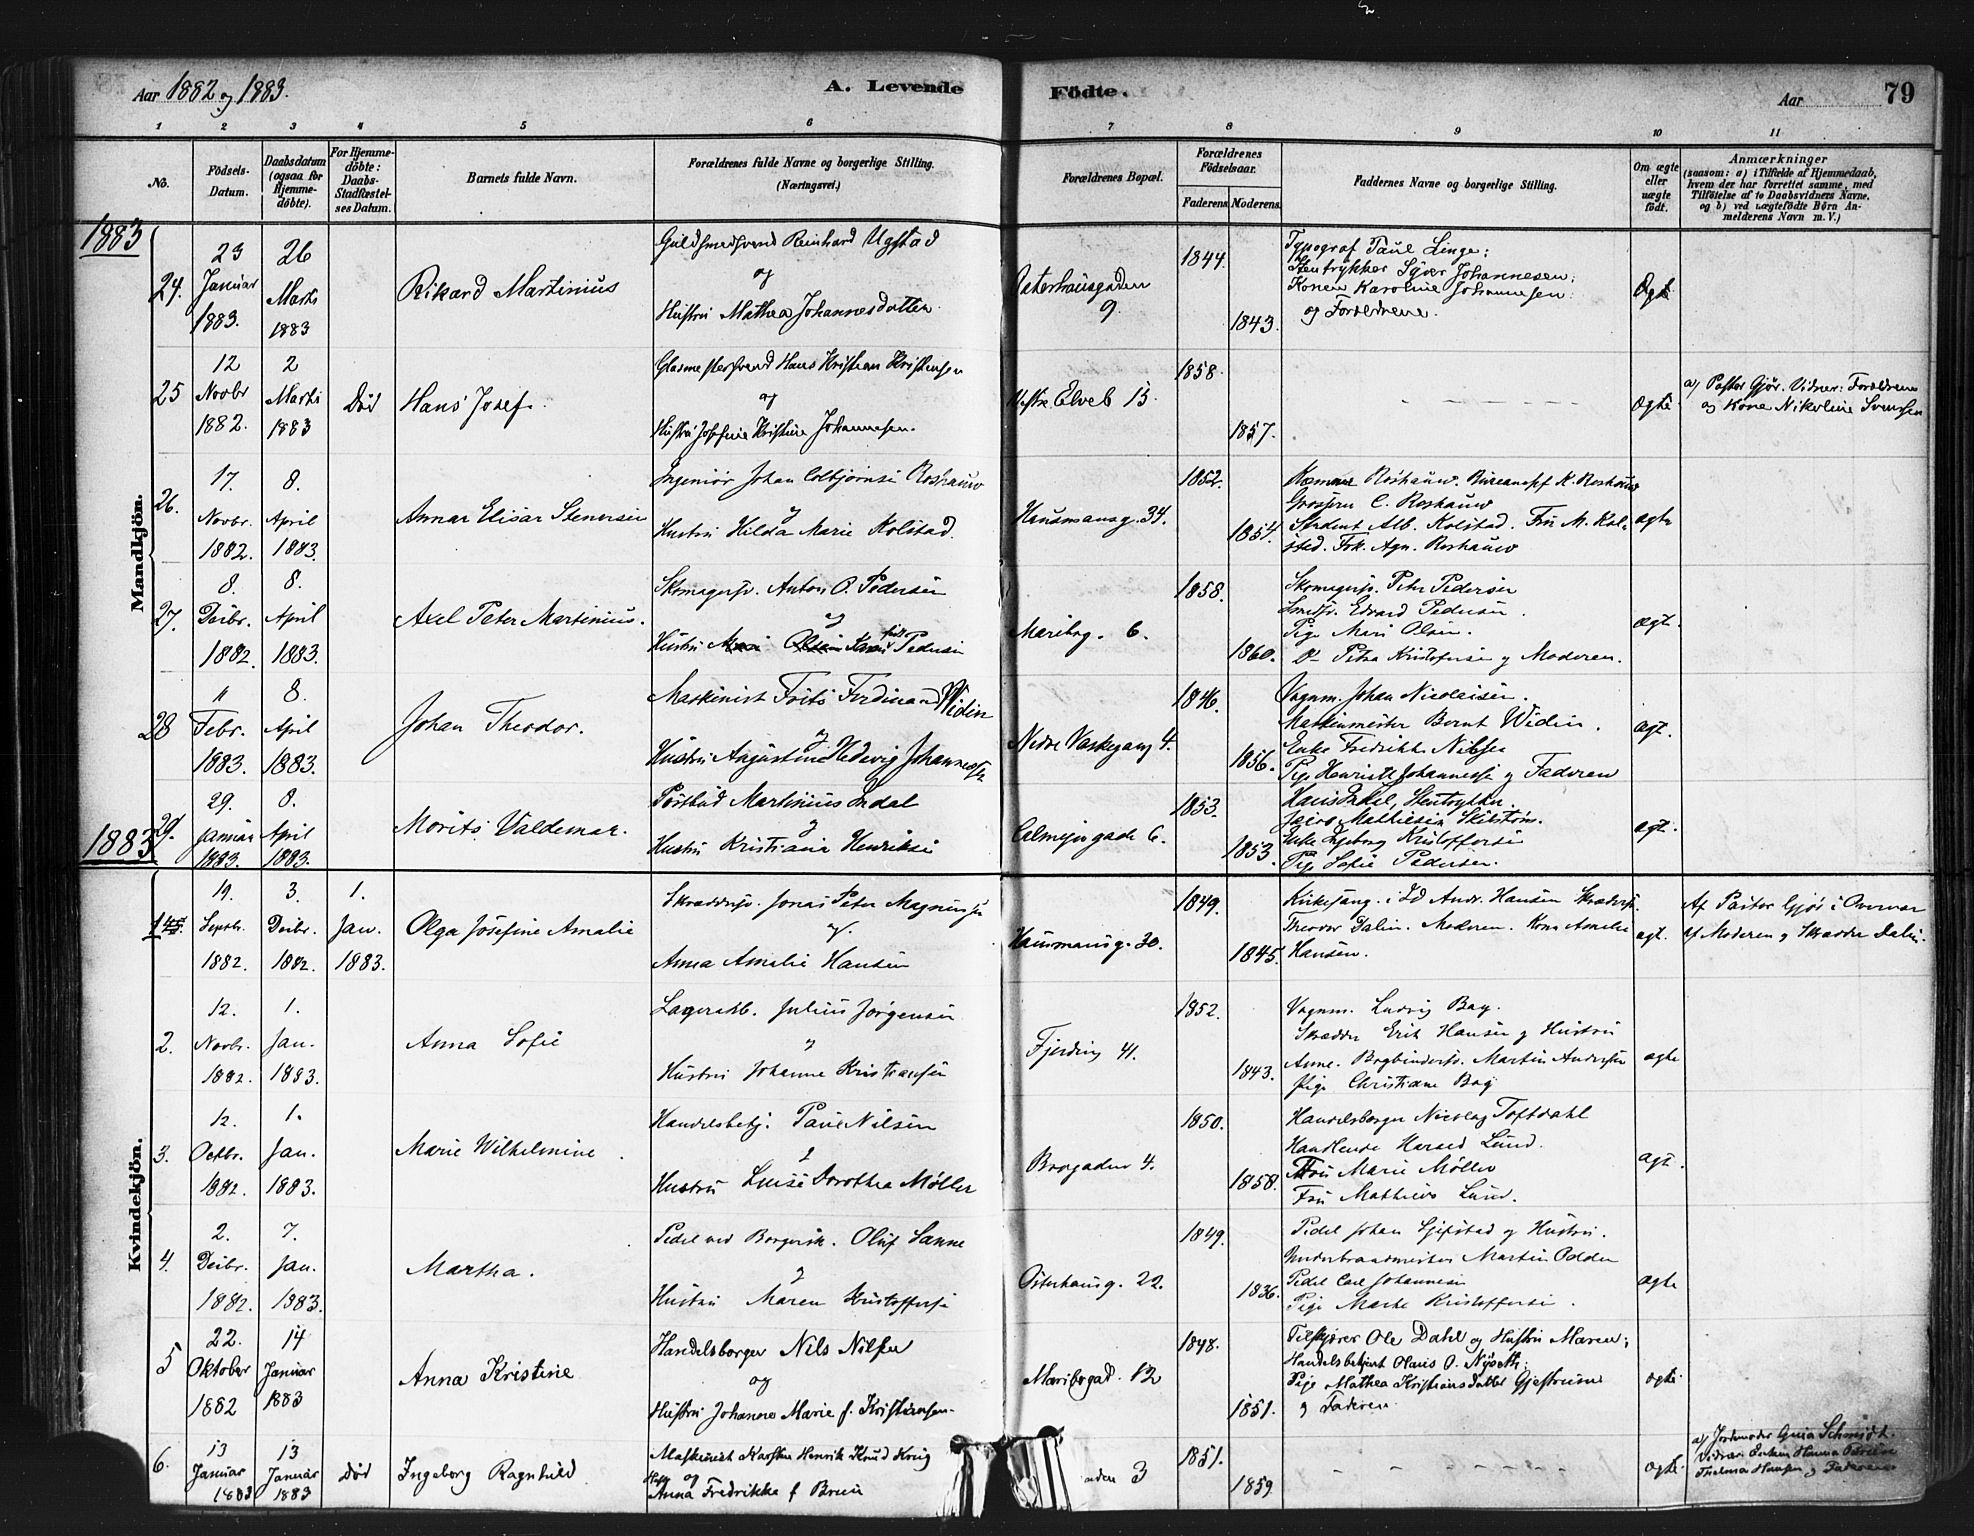 Aar 1882 og 1883.
A. Levende Födte.
Aar 79
1 2 3 4 5 6 7 8 9 10 11
No.
Födsels-Datum.
Daabsdatum (ogsaa for Hjemme-döbte).
For Hjemme-döbte: Daabs-Stadfæstel-ses Datum.
Barnets fulde Navn.
Forældrenes fulde Navne og borgerlige Stilling.
(Næringsvei.)
Forældrenes Bopæl.
Forældrenes Födselsaar.
Faderens. Moderens.
Faddernes Navne og borgerlige Stilling.
Om ægte eller uægte födt.
Anmærkninger
(saasom: a) i Tilfælde af Hjemmedaab,
hvem der har forrettet samme, med
Tilföielse af to Daabsvidners Navne,
og b) ved uægtefödte Börn An-
melderens Navn m. V.)
1883
Mandkjön.
24. 23 Januar 1883. 26 Marts 1883
Rikard Martinius
Guldsmedsvend Reinhard Ugstad
og
Hustru Mathea Johannesdatter
Osterhausgaden 9.
1844. 1843.
Typograf Paul Linge;
Stentrykker Syver Johannesen;
Konen Karoline Johannesen;
og Forældrene.
Ægte
25 12 Novbr 1882. 2 Marts 1883 Død
Hans Josef.
Glasmestersvend Hans Kristian Kristensen
og
Hustru Josefine Kristine Johannesen.
Vestre Elveb 13.
1858. 1857.
Ægte
a) Pastor Gjør. Vidner: Forældrene
og Kone Nikoline Svensen
26. 17. Novbr. 1882. 8. April 1883.
Annar Elisar Stenersen
Ingeniör Johan Colbjörnsen Roshauw
og
Hustru Hilda Marie Kolstad.
Hausmansg. 34.
1852. 1854.
Roshauw. K. Roshauw
C. Roshauw
Student Alb. Kolstad. Fru M. Kol-
stad. Frk. Agn. Roshauw
ægte
27. 8. Decbr. 1882. 8. April 1883.
Axel Peter Martinius.
Skomagersv. Anton O. Pedersen
og
Hustru Pedersen
Maribog. 6.
1858. 1860.
Skomagersv. Peter Pedersen
Smedsv. Edvard Pedersen.
Pige Mari Olsen.
Do Petra Kristofersen og Moderen.
ægt.
28 11 Febr. 1883. 8. April 1883.
Johan Theodor.
Maskinist Frits Ferdinand Widin
og
Hustru Augustine Hedevig Johannessen
Nedre Vaskegang 4.
1846. 1856.
Vognm. Johan Nicolaisen.
Maskinmester Bernt Widin.
Enke Fredrikke Nilsen
Pige Henriette Johannessen og Faderen
ægt.
1883
29. 29. Januar 1883. 8. April 1883.
Morits Valdemar.
Postbud Martinius Indal
og
Hustru Kristiane Henriksen
Calmeyergade 6.
1853. 1853.
Hans Indal, Stentrykker.
Jacob Mathiesen
Enke Ingeborg Kristoffersen
Pige Sofie Pedersen.
ægt.
Kvindekjön.
1 19. Septbr. 1882. 3. Decbr. 1882. 1. Jan. 1883.
Olga Josefine Amalie
Skræddersv. Jonas Peter Magnussen
og
Anna Amalie Hansen
Hausmansg. 30.
1849. 1845.
Kirkesang. Andr. Hansen Skrædersv.
Theodor Dalin. Moderen. Kone Amalie
Hansen.
ægt.
Af Pastor Gjør i Overvær
af Moderen og Skrædder Dalin.
2. 12. Novbr. 1882. 1. Jan. 1883.
Anna Sofie
Lagerarb. Julius Jørgensen
og
Hustru Johanne Kristiansen
Fjerding 41.
1852. 1843.
Vognm. Ludvig Bay.
Skrædder Erik Hansen og Hustru
Anne. Bogbindersv. Martin Andersen
Pige Christiane Bay
ægte
3. 12. Octbr. 1882. 1. Jan. 1883.
Marie Wilhelmine
Handelsbetj. Paul Nilsen
og
Hustru Luise Dorothea Møller
Brogaden 4.
1850. 1858.
Handelsborger Nicolay Toftdahl
Handlende Harald Lund.
Fru Marie Møller
Fru Mathilde Lund.
ægt.
4. 2. Decbr. 1882. 7. Jan. 1883.
Martha.
Pedel ved Borgersk. Oluf Sanne
og
Hustru Maren Kristoffersen
Osterhausg. 22.
1849. 1836.
Pedel Johan og Hustru.
Underbrandmester Martin Odden
Pedel Carl Johannesen
Pige Marte Kristoffersen.
ægte
5 22. Oktober 1882 14 Januar 1883
Anna Kristine
Handelsborger Nils Nilsen
og
Hustru Johanne Marie f. Kristiansen.
Maribogad. 12
1848. 1851.
Ole Dahl og Hustru Maren;
Handelsbetjent Hans O. Nyseth;
Pige Mathea Kristiansdatter Gjestrum
og Faderen
ægte
6. 13 Januar 1883 13 Januar 1883 død
Ingeborg Ragnhild
Maskinist Karsten Henrik Knud Krig
og
Hust. Anna Fredrikke f Bruun
aden 3
1851. 1859
ægte
a) Jordmoder Guia Schmidt.
Vidner: Enken Hanna
Thelma Hansen og Faderen